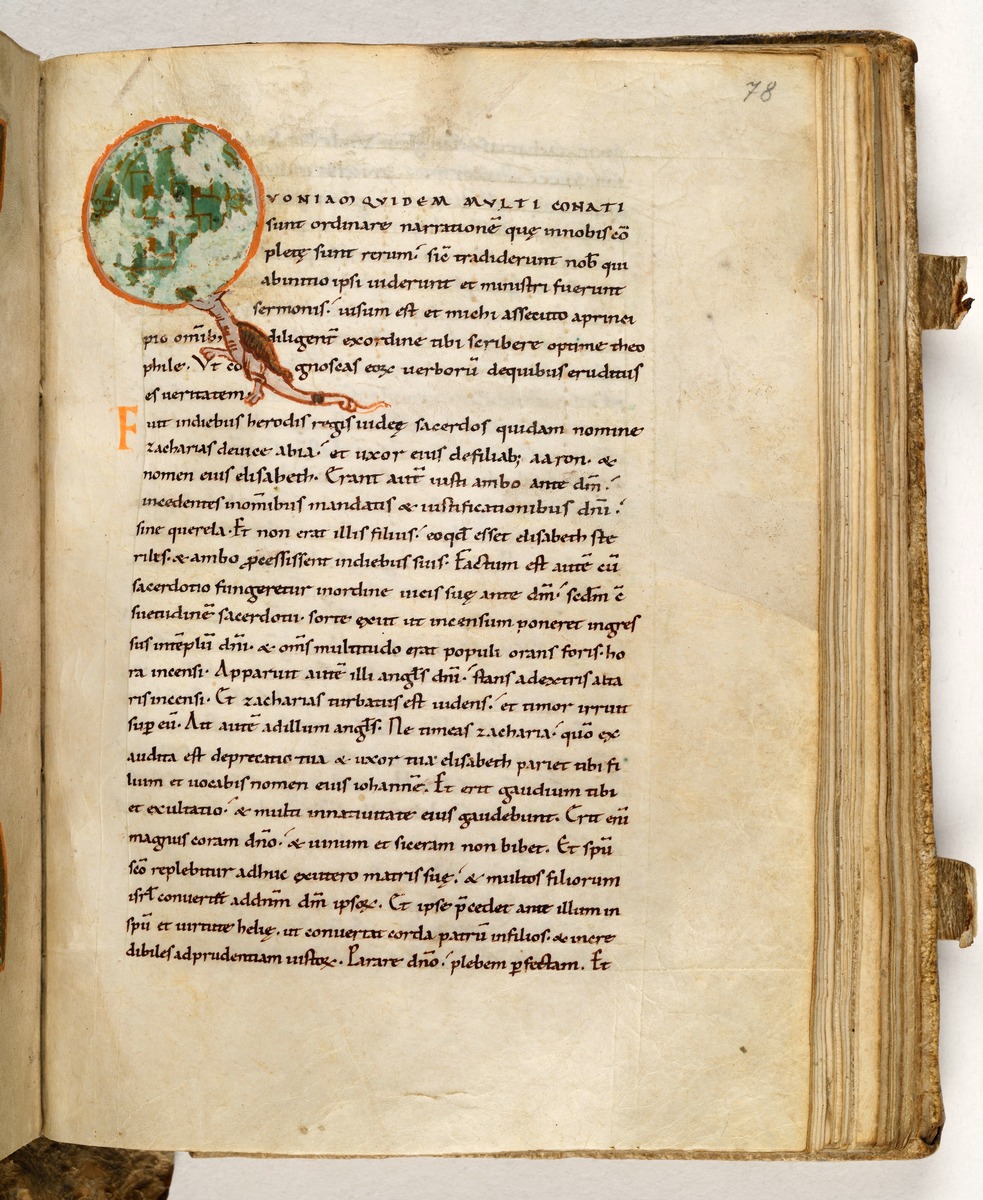 78
VONIAM QVIDEM MVLTI CONATI
sunt ordinare narrationē quę innobis cō
pletę sunt rerum; sic̄ tradiderunt nob̄ qui
abinitio ipsi uiderunt et ministri fuerunt
sermonis; uisum est et michi assecuto aprinci
pio omīb; diligent̄ exordine tibi scribere optime theo
phile. Vt cognoscas eoꝝ uerborū dequibus eruditus
es ueritatem.
Fuit indiebus herodis regis iudeę sacerdos quidam nomine
zacharias deuice abia; et uxor eius defiliab; aaron. &
nomen eius elisabeth. Erant aut̄ iusti ambo ante dm̄;
incedentes inom̄ibus mandatis & iustificationibus dn̄i;
sine querela. Et non erat illis filius; eo qd̄ esset elisabeth ste
riles. & ambo ꝓcessissent indiebus suis. Factum est autē cū
sacerdotio fungeretur inordine uicis suę ante dm̄; scdm̄ c̄
suetudinē sacerdotii. sorte exiit ut incensum poneret ingres
sus intēplū dn̄i. & om̄s multitudo erat populi orans foris. ho
ra incensi. Apparuit autē illi angl̄s dn̄i; stans adextris alta
ris incensi. Et zacharias turbatus est uidens; et timor irruit
suꝑ eū. Ait autē adillum angl̄s. Ne timeas zacharia; quō ex
audita est deprecatio tua & uxor tua elisabeth pariet tibi fi
lium et uocabis nomen eius iohannē. Et erit gaudium tibi
et exultatio; & multi innatiuitate eius gaudebunt. Erit eni
magnus coram dn̄o; & uinum et siceram non bibet. Et spū
scō replebitur adhuc exutero matris suę; & multos filiorum
isrl̄ conuertet addn̄m dm̄ ipsoꝝ. Et ipse p̄cedet ante illum in
spū et uirtute helię. ut conuertat corda patrū infilios. & incre
dibiles adprudentiam iustoꝝ. Parare dn̄o; plebem ꝑfectam. Et